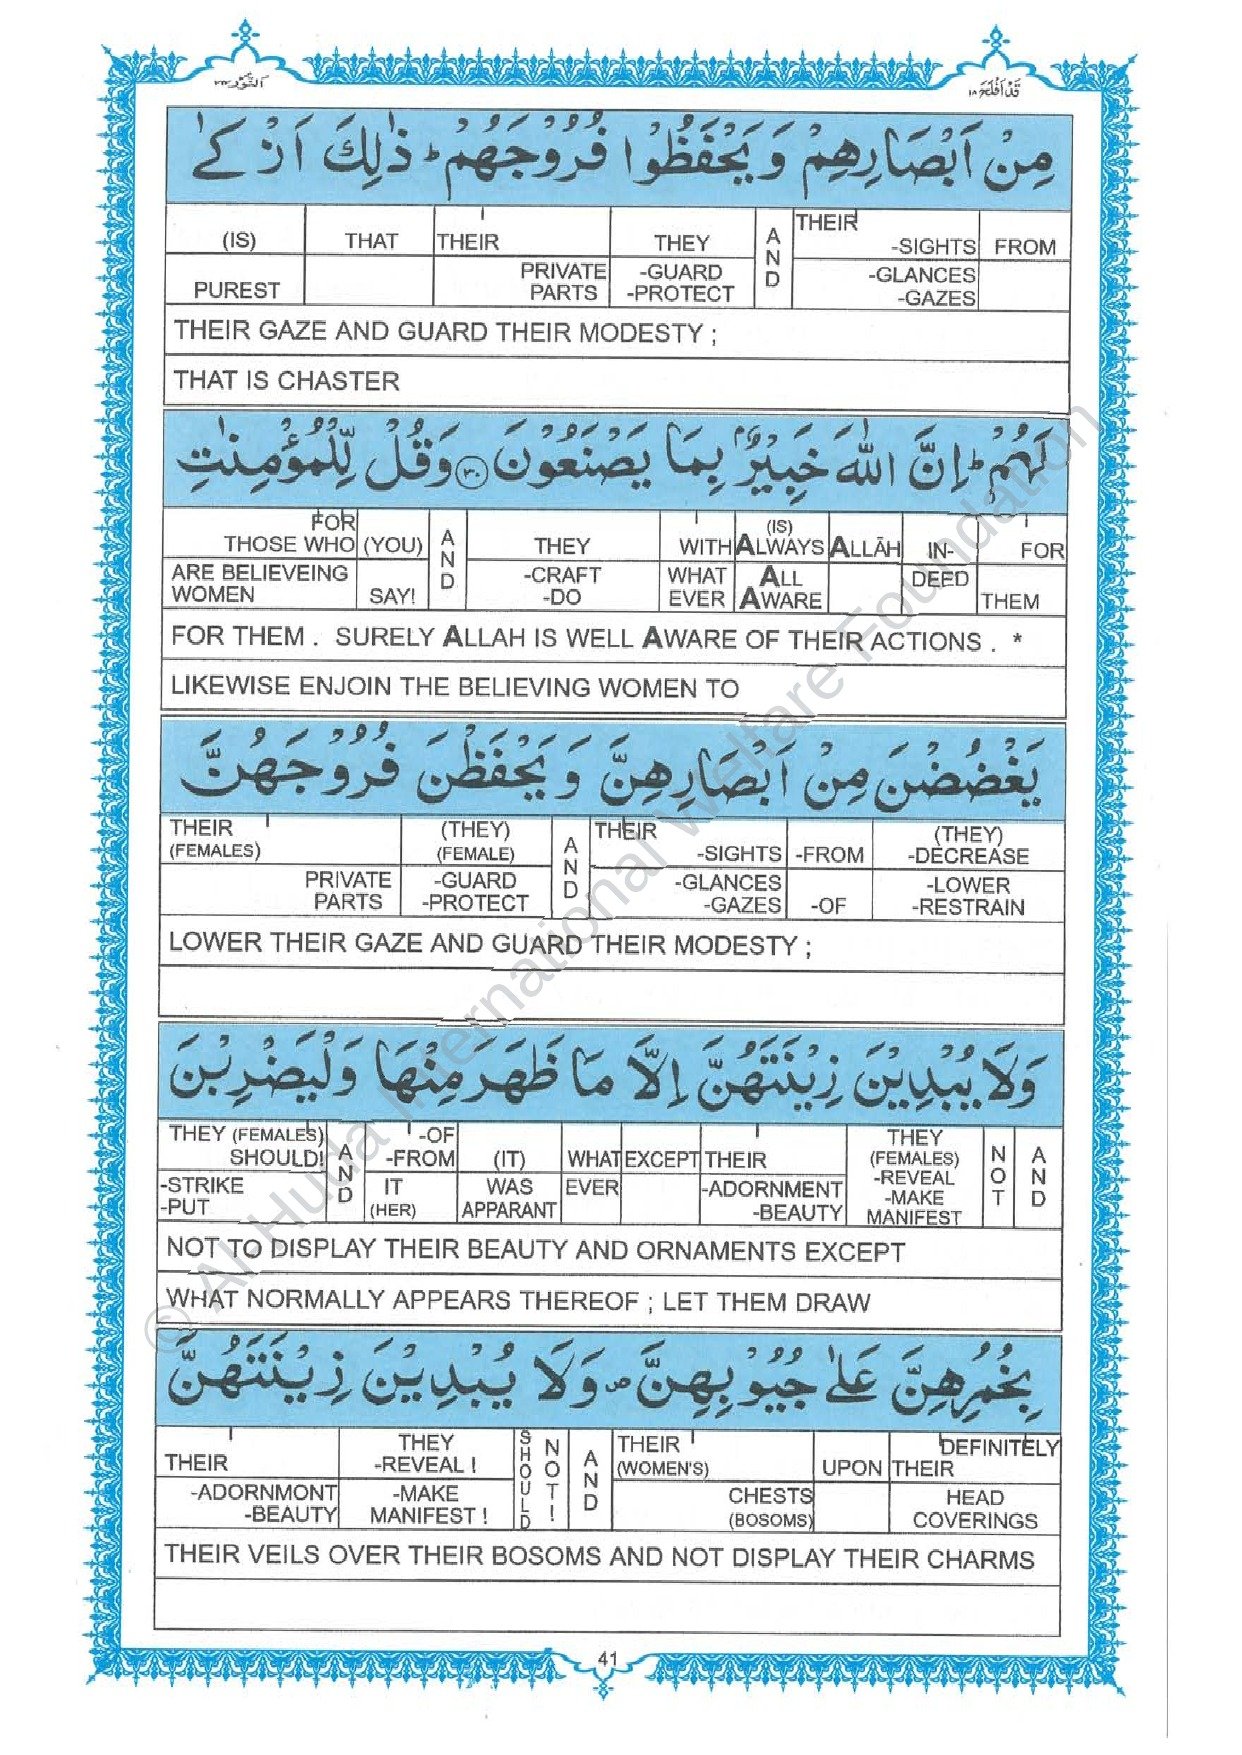 اَلنُّوْر ٢٤
قَدْ اَفْلَحَ ١٨
مِنْ اَبْصَارِهِمْ وَيَحْفَظُوْا فُرُوْجَهُمْ ؕ ذٰلِكَ اَزْكٰى
(IS) THAT THEIR THEY AND THEIR -SIGHTS FROM
PUREST PRIVATE PARTS -GUARD -PROTECT -GLANCES -GAZES
THEIR GAZE AND GUARD THEIR MODESTY ;
THAT IS CHASTER
لَهُمْ ؕ اِنَّ اللّٰهَ خَبِيْرٌۢ بِمَا يَصْنَعُوْنَ ﴿٣٠﴾ وَقُلْ لِّلْمُؤْمِنٰتِ
FOR THOSE WHO (YOU) AND THEY WITH (IS) ALWAYS ALLĀH IN- FOR
ARE BELIEVEING WOMEN SAY! -CRAFT -DO WHAT EVER ALL AWARE DEED THEM
FOR THEM . SURELY ALLAH IS WELL AWARE OF THEIR ACTIONS . *
LIKEWISE ENJOIN THE BELIEVING WOMEN TO
يَغْضُضْنَ مِنْ اَبْصَارِهِنَّ وَيَحْفَظْنَ فُرُوْجَهُنَّ
THEIR (FEMALES) (THEY) (FEMALE) AND THEIR -SIGHTS -FROM (THEY) -DECREASE
PRIVATE PARTS -GUARD -PROTECT -GLANCES -GAZES -OF -LOWER -RESTRAIN
LOWER THEIR GAZE AND GUARD THEIR MODESTY ;
وَلَا يُبْدِيْنَ زِيْنَتَهُنَّ اِلَّا مَا ظَهَرَ مِنْهَا وَلْيَضْرِبْنَ
THEY (FEMALES) SHOULD! AND -OF -FROM (IT) WHAT EXCEPT THEIR THEY (FEMALES) -REVEAL NOT AND
-STRIKE -PUT IT (HER) WAS APPARANT EVER -ADORNMENT -BEAUTY -MAKE MANIFEST
NOT TO DISPLAY THEIR BEAUTY AND ORNAMENTS EXCEPT
WHAT NORMALLY APPEARS THEREOF ; LET THEM DRAW
بِخُمُرِهِنَّ عَلٰى جُيُوْبِهِنَّ ۪ وَلَا يُبْدِيْنَ زِيْنَتَهُنَّ
THEIR THEY -REVEAL ! SHOULD NOT! AND THEIR (WOMEN'S) UPON DEFINITELY THEIR
-ADORNMONT -BEAUTY -MAKE MANIFEST ! CHESTS (BOSOMS) HEAD COVERINGS
THEIR VEILS OVER THEIR BOSOMS AND NOT DISPLAY THEIR CHARMS
41
© Al-Huda International Welfare Foundation